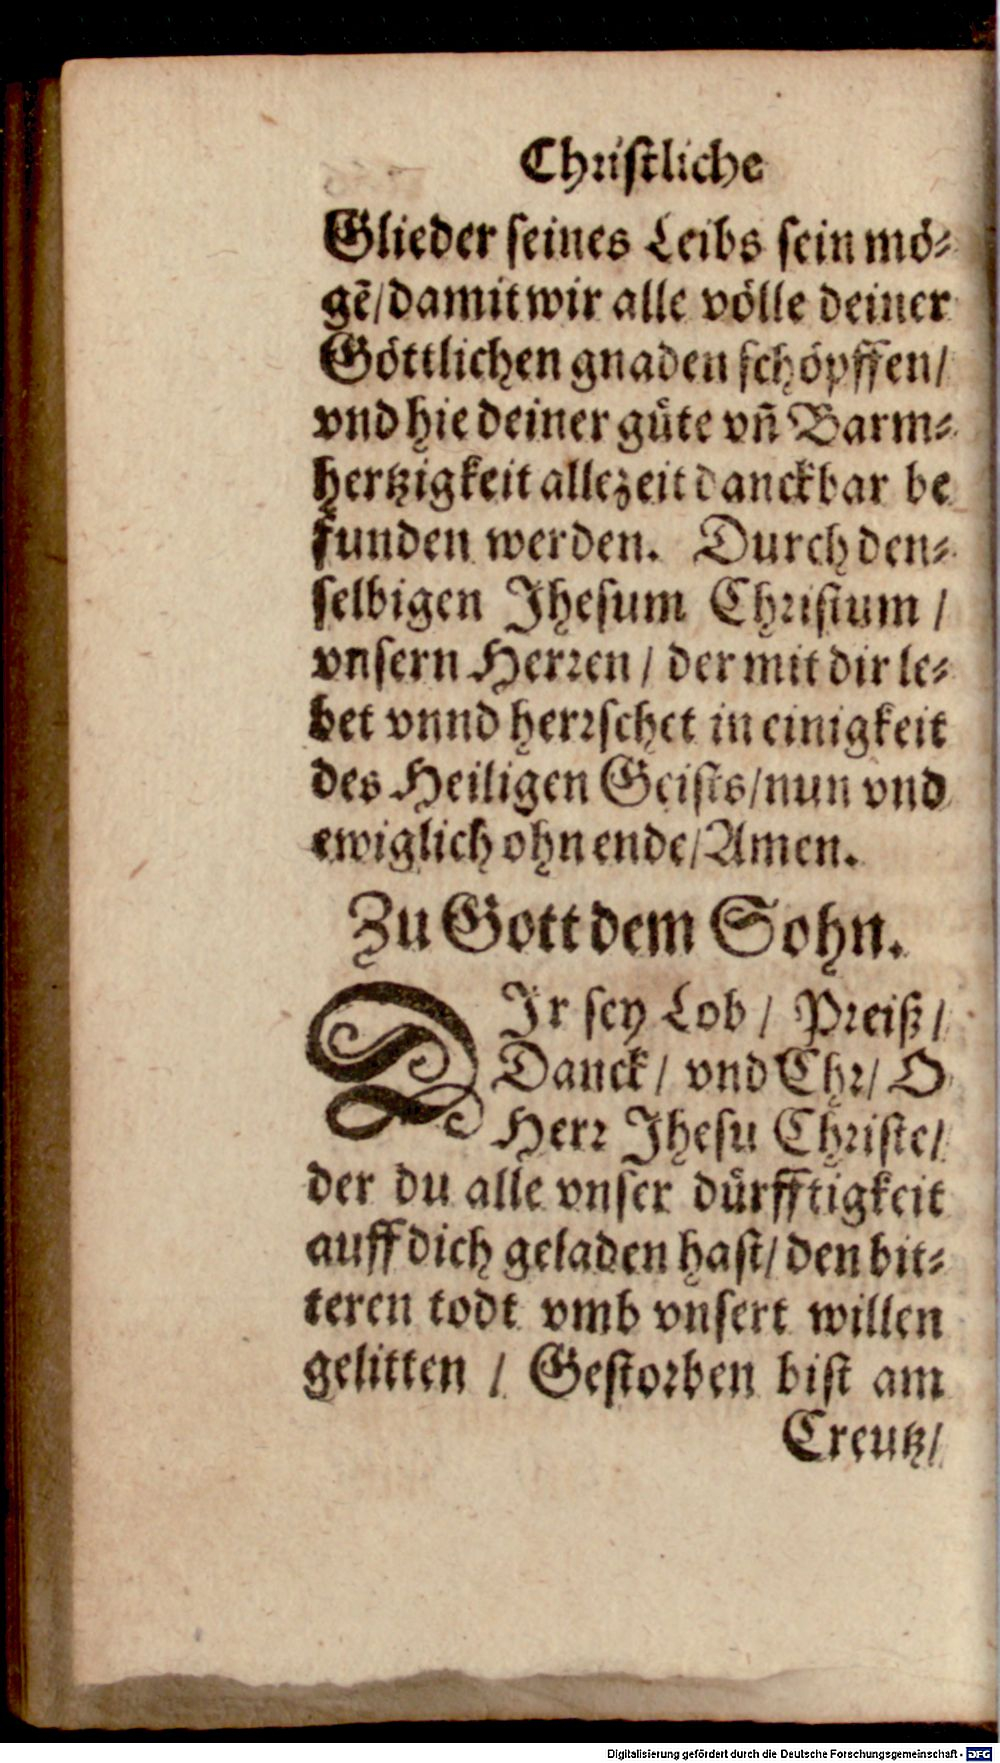 Christliche
Glieder seines Leibs sein mö-
gẽ/damit wir alle völle deiner
Göttlichen gnaden schöpffen/
vnd hie deiner güte vñ Barm-
hertzigkeit allezeit danckbar be
funden werden. Durch den-
selbigen Jhesum Christum /
vnsern Herren / der mit dir le-
bet vnnd herrschet in einigkeit
des Heiligen Geists/nun vnd
ewiglich ohn ende/Amen.
Zu Gott dem Sohn.
DJr sey Lob / Preiß /
Danck / vnd Ehr/ O
Herr Jhesu Christe/
der du alle vnser dürfftigkeit
auff dich geladen hast/ den bit-
teren todt vmb vnsert willen
gelitten / Gestorben bist am
Creutz/
Digitalisierung gefördert durch die Deutsche Forschungsgemeinschaft - DFG